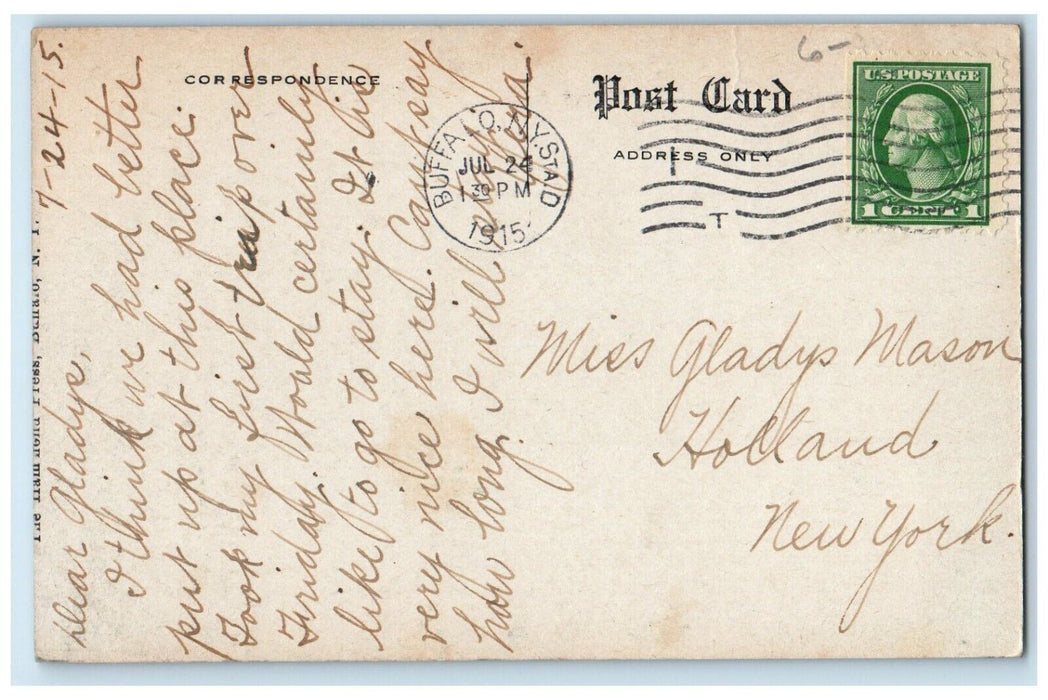 CORRESPONDENCE
Post Card
ADDRESS ONLY
6-
U.S. POSTAGE
1 CENT 1
BUFFALO, N.Y. STA. D
JUL 24
1 30 PM
1915
T
The Hammond Press, Buffalo, N. Y.
7-24-15.
Dear Gladys,
I think we had better
put up at this place.
Took my first trip over
Friday. Would certainly
like to go to stay. It is
very nice here. Can't say
how long I will
Miss Gladys Mason
Holland
New York.